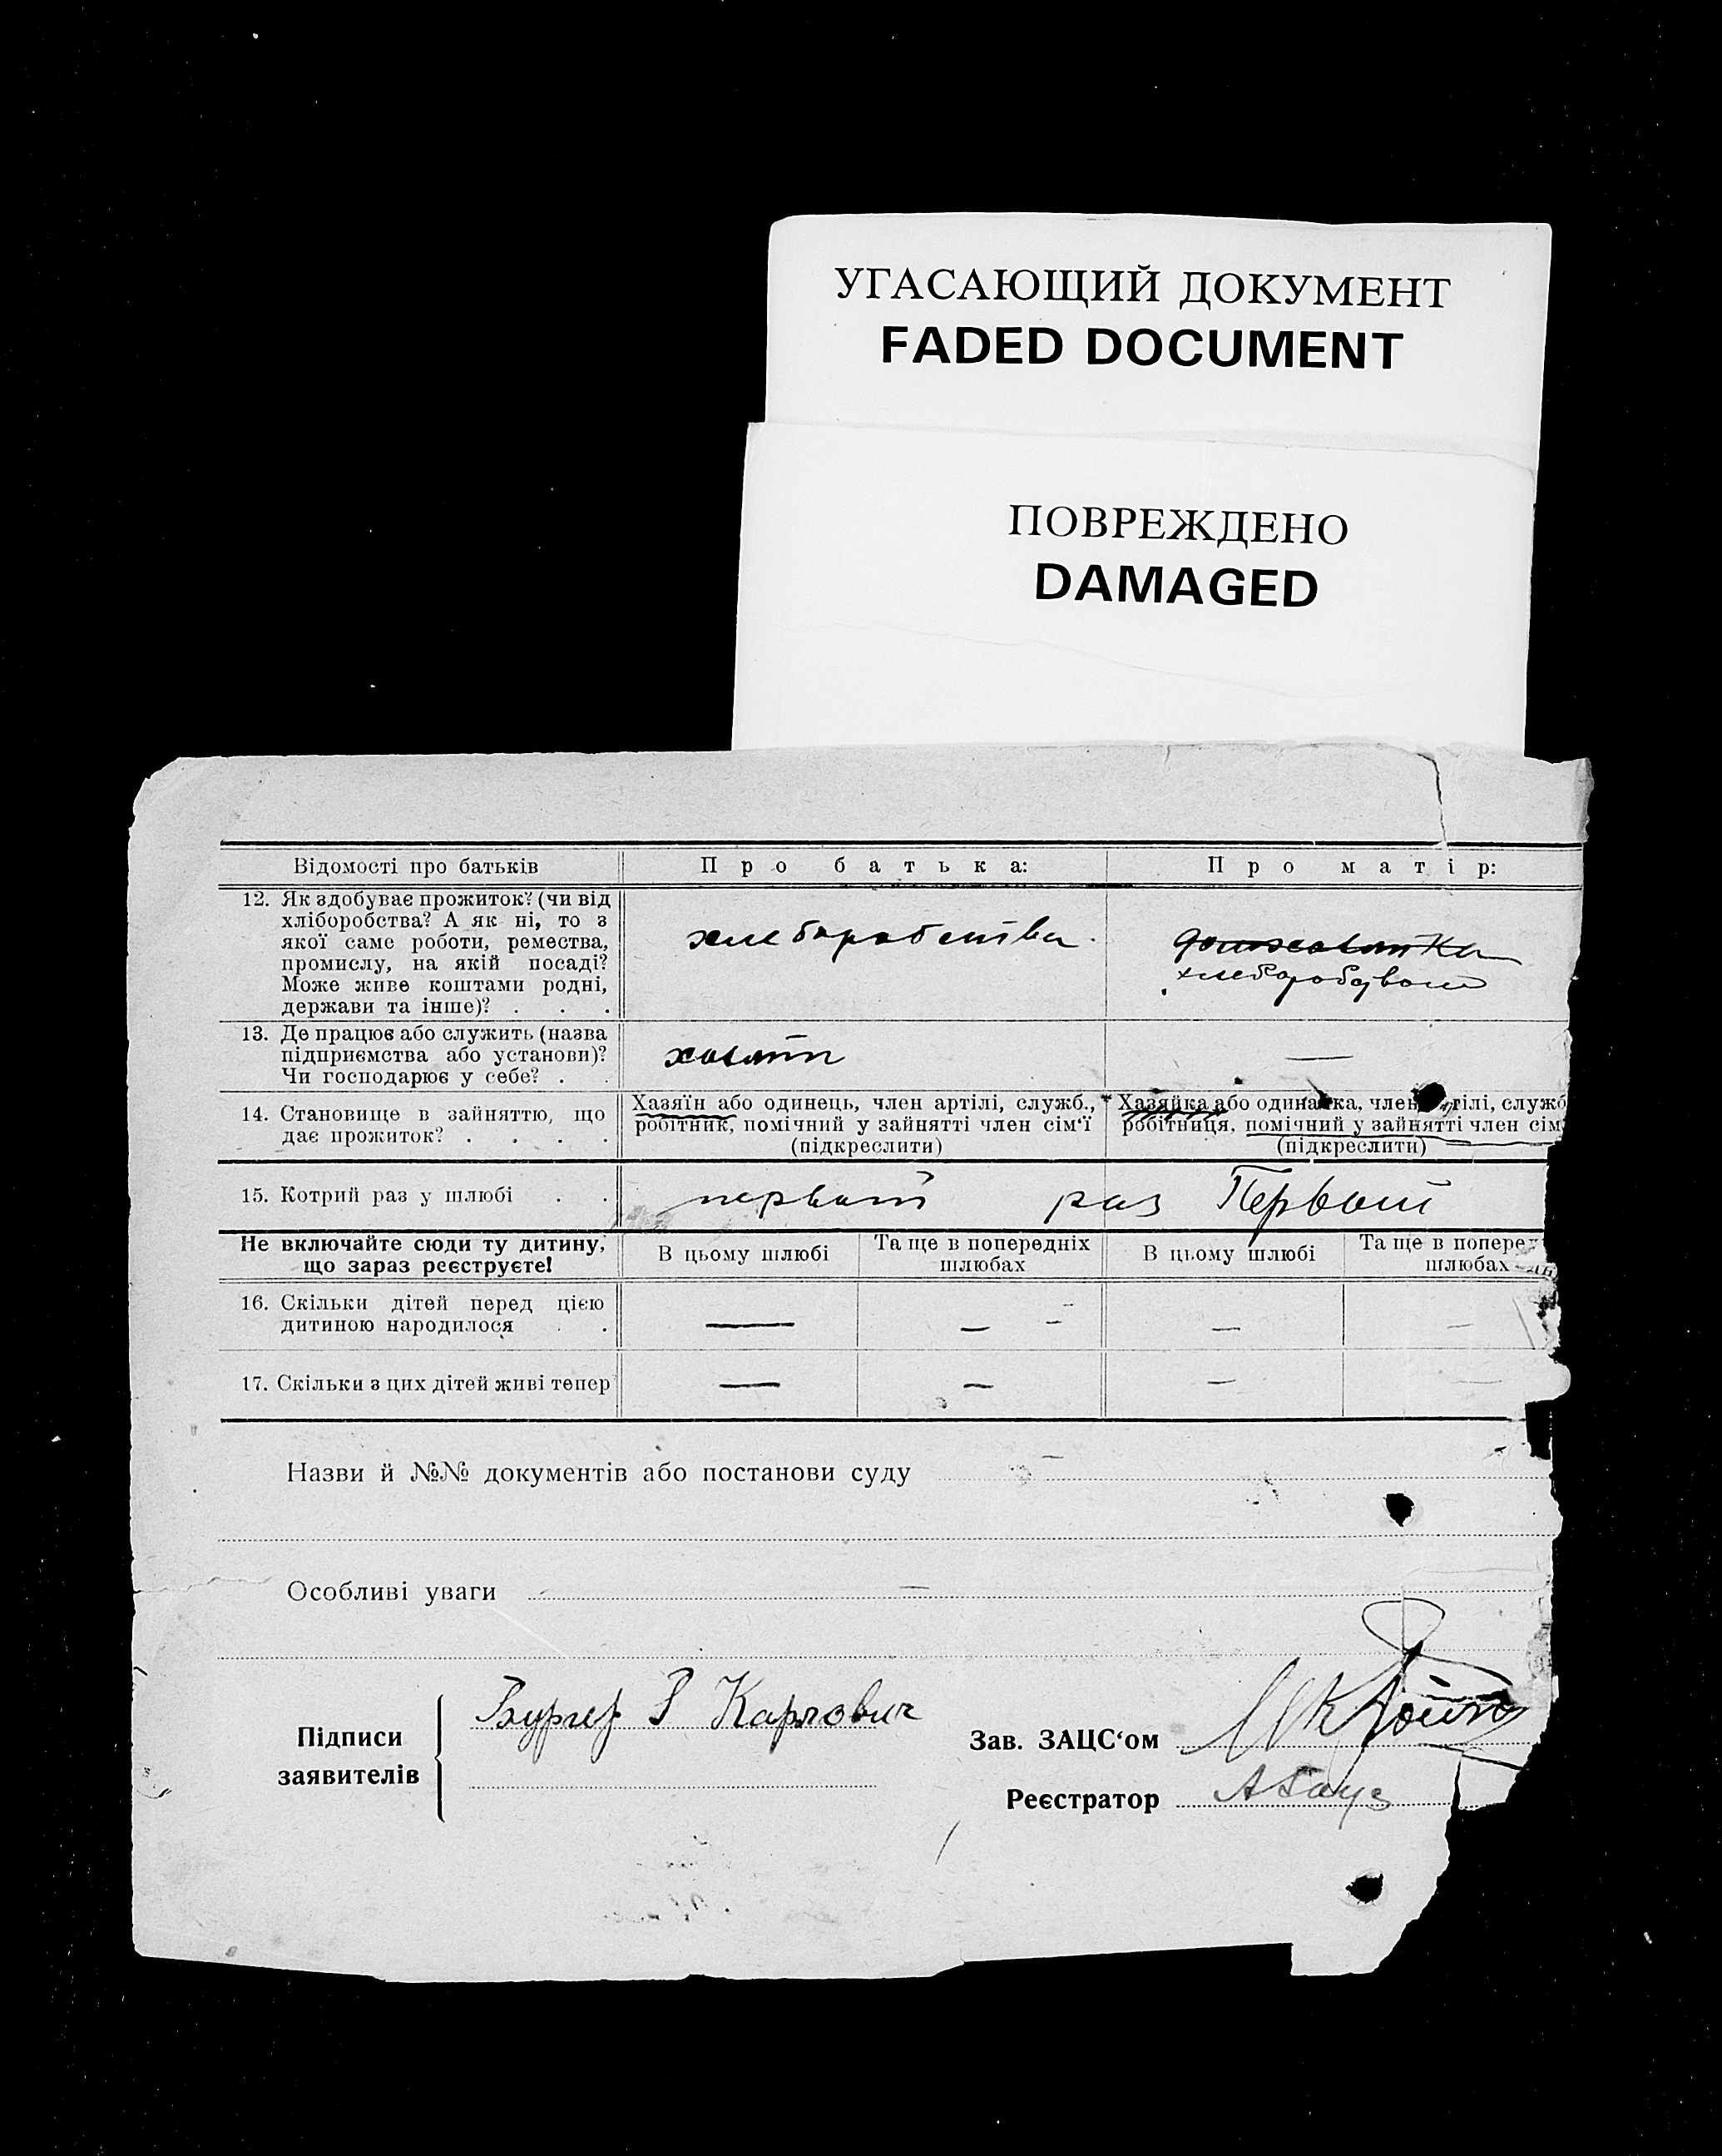 УГАСАЮЩИЙ ДОКУМЕНТ
FADED DOCUMENT
ПОВРЕЖДЕНО
DAMAGED
Відомості про батьків
Про батька:
Про матір:
12. Як здобуває прожиток? (чи від
хліборобства? А як ні, то з
якої саме роботи, ремества,
промислу, на якій посаді?
Може живе коштами родні,
держави та інше)? . . .
13. Де працює або служить (назва
підприємства або установи)?
Чи господарює у себе? . .
—
14. Становище в зайняттю, що
дає прожиток? . . . .
Хазяїн або одинець, член артілі, служб.,
робітник, помічний у зайнятті член сім'ї
(підкреслити)
Хазяйка або одиначка, член артілі, служб
робітниця, помічний у зайнятті член сім
(підкреслити)
15. Котрий раз у шлюбі . .
первый раз
Первый
Не включайте сюди ту дитину,
що зараз реєструєте!
В цьому шлюбі
Та ще в попередніх
шлюбах
В цьому шлюбі
Та ще в попере
шлюбах
16. Скільки дітей перед цією
дитиною народилося . .
— — — —
17. Скільки з цих дітей живі тепер
— — — —
Назви й №№ документів або постанови суду —
Особливі уваги —
Підписи
заявителів
Бургер Р Карлович
Зав. ЗАЦС'ом
Реєстратор